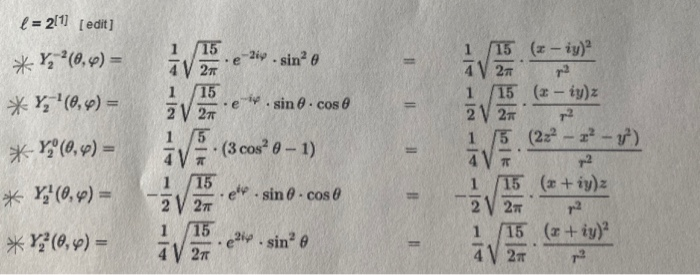 ℓ = 2[1] [edit]
✳ Y₂⁻²(θ, φ) = 1/4 √(15/2π) · e^{−2iφ} · sin² θ = 1/4 √(15/2π) · (x − iy)²/r²
✳ Y₂⁻¹(θ, φ) = 1/2 √(15/2π) · e^{−iφ} · sin θ · cos θ = 1/2 √(15/2π) · (x − iy)z/r²
✳ Y₂⁰(θ, φ) = 1/4 √(5/π) · (3 cos² θ − 1) = 1/4 √(5/π) · (2z² − x² − y²)/r²
✳ Y₂¹(θ, φ) = −1/2 √(15/2π) · e^{iφ} · sin θ · cos θ = −1/2 √(15/2π) · (x + iy)z/r²
✳ Y₂²(θ, φ) = 1/4 √(15/2π) · e^{2iφ} · sin² θ = 1/4 √(15/2π) · (x + iy)²/r²